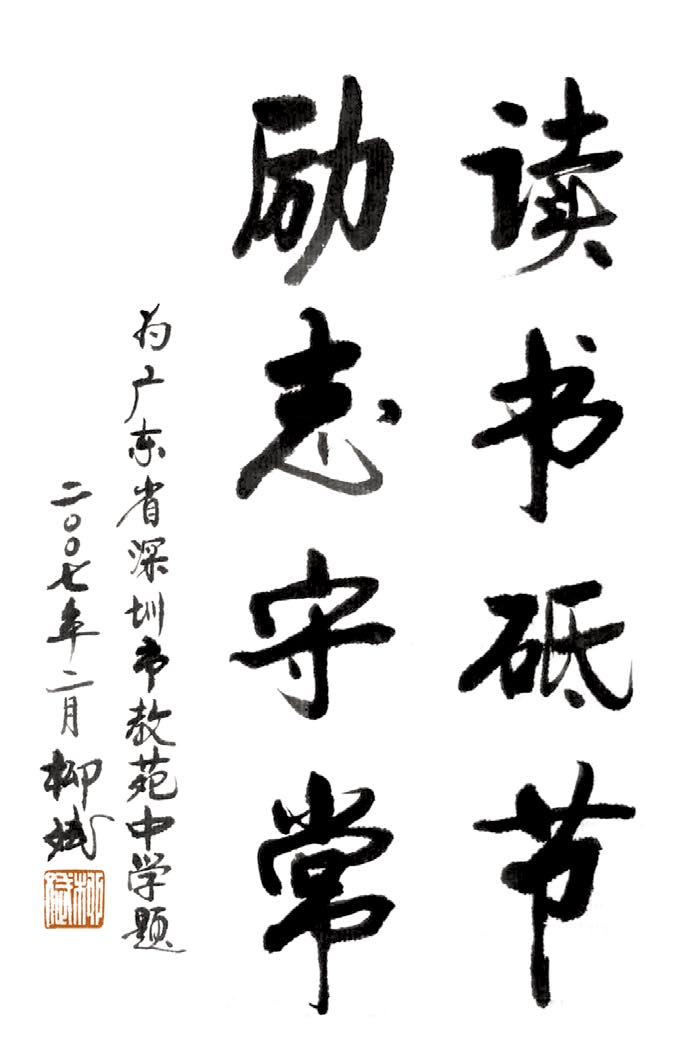 读书砥节
励志守常
为广东省深圳市教苑中学题
二〇〇七年二月 柳斌
柳斌